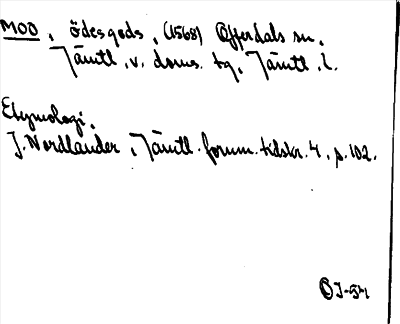 MOO, ödesgods, (1568) Offerdals sn.
Jämtl. v. doms. tg, Jämtl. l.
Etymologi.
J. Nordlander, Jämtl. fornm. tidskr. 4, p. 102.
ÖJ-54